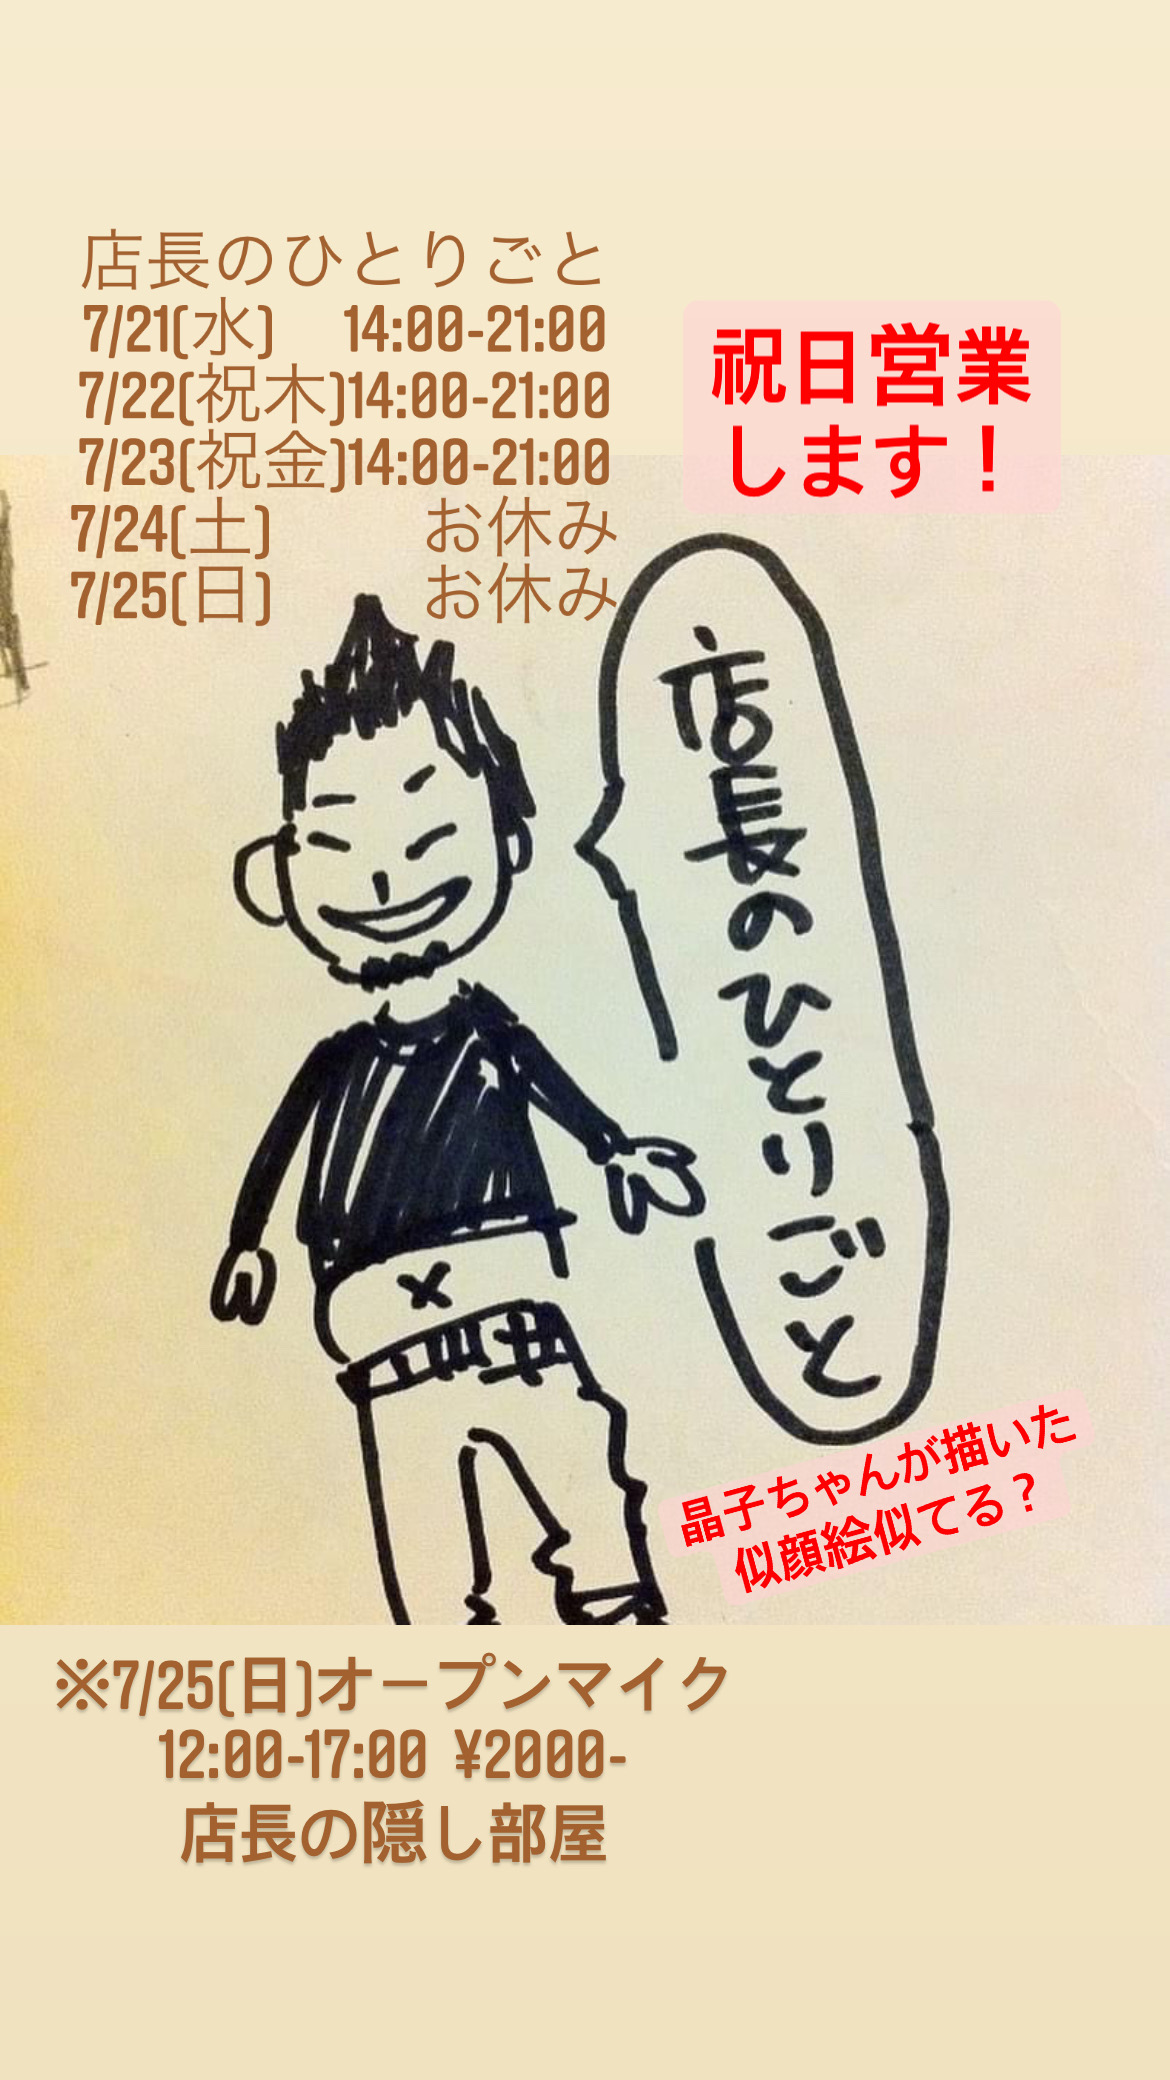 店長のひとりごと
7/21(水) 14:00-21:00
7/22(祝木)14:00-21:00
7/23(祝金)14:00-21:00
7/24(土) お休み
7/25(日) お休み
祝日営業
します！
店長のひとりごと
晶子ちゃんが描いた
似顔絵似てる？
※7/25(日)オープンマイク
12:00-17:00 ¥2000-
店長の隠し部屋